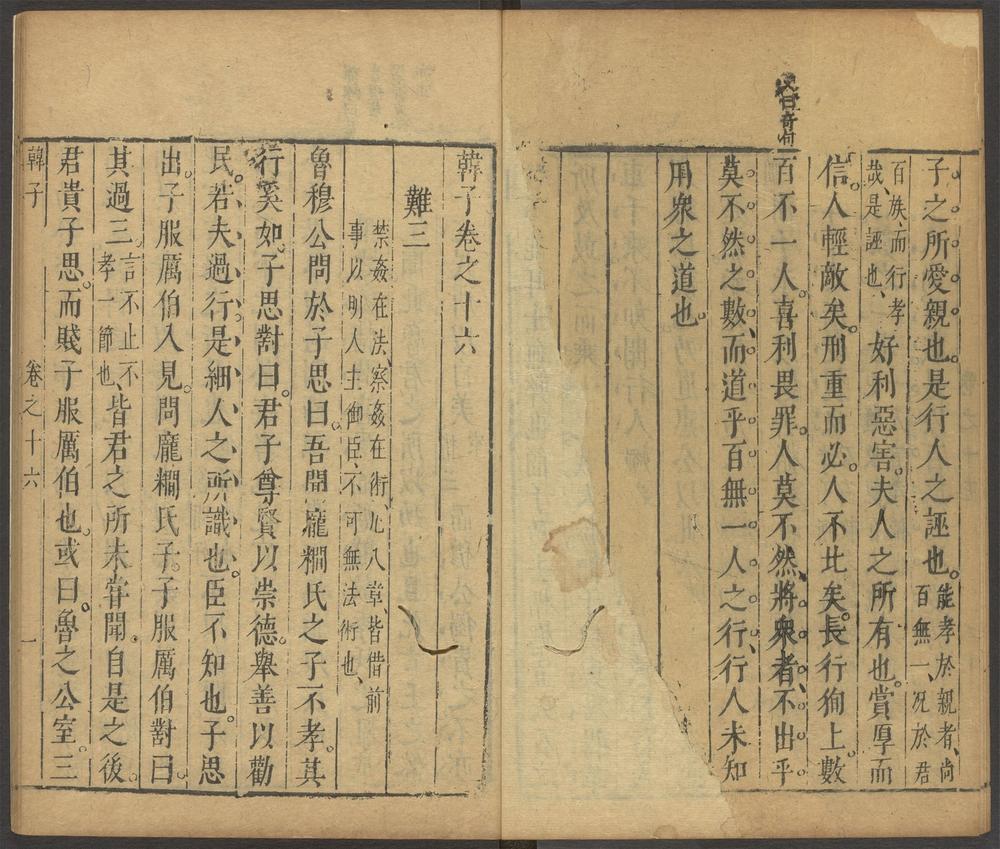 又曰奇句
子之所愛親也是行人之誣也能孝於親者尚百無一況於君
百族而行孝哉是誣也好利惡害夫人之所有也賞厚而
信人輕敵矣刑重而必人不北矣長行徇上數
百不一人喜利畏罪人莫不然將衆者不出乎
莫不然之數而道乎百無一人之行行人未知
用衆之道也
韓子卷之十六
難三
禁姦在法察姦在術凡八章皆借前事以明人主御臣不可無法術也
魯穆公問於子思曰吾聞龐𥹋氏之子不孝其
行奚如子思對曰君子尊賢以崇德舉善以勸
民若夫過行是細人之所識也臣不知也子思
出子服厲伯入見問龐𥹋氏子子服厲伯對曰
其過三言不止不孝一節也皆君之所未嘗聞自是之後
君貴子思而賤子服厲伯也或曰魯之公室三
韓子 卷之十六 一